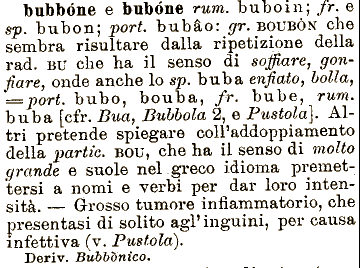 bubbóne e bubóne rum. buboin; fr. e
sp. bubon; port. bubâo: gr. BOUBÒN che
sembra risultare dalla ripetizione della
rad. BU che ha il senso di soffiare, gon-
fiare, onde anche lo sp. buba enfiato, bolla,
= port. bubo, bouba, fr. bube, rum.
buba [cfr. Bua, Bubbola 2, e Pustola]. Al-
tri pretende spiegare coll'addoppiamento
della partic. BOU, che ha il senso di molto
grande e suole nel greco idioma premet-
tersi a nomi e verbi per dar loro inten-
sità. — Grosso tumore infiammatorio, che
presentasi di solito agl'inguini, per causa
infettiva (v. Pustola).
Deriv. Bubbònico.